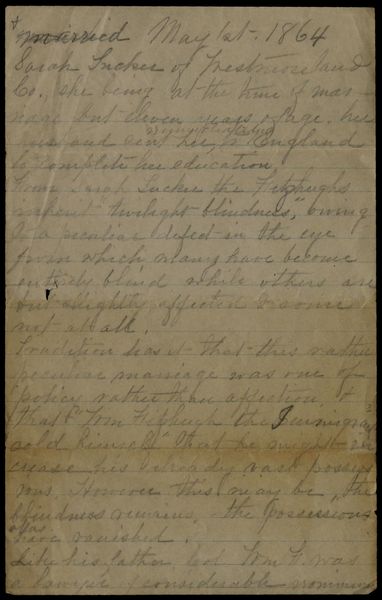 married May 1st. 1864
Sarah Tucker of Westmoreland
Co., she being at the time of mar-
riage but eleven years of age. her
husband sent her to England
to complete her education.
From Sarah Tucker the Fitzhughs
inherit "twilight blindness," owing
to a peculiar defect in the eye
from which many have become
entirely blind while others are
but slightly affected & some
not at all.
Tradition has it that this rather
peculiar marriage was one of
policy rather than affection, &
that "Wm Fitzhugh the Immigrant
sold himself" that he might in
crease his already vast possess
ions. However this may be, the
blindness remains, the possessions
have vanished.
Like his father, Col Wm F. was
a lawyer of considerable